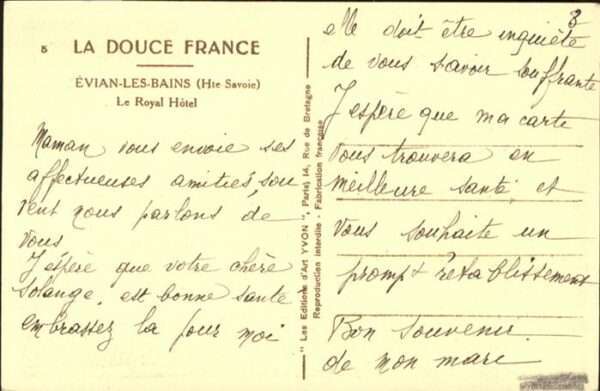 5 LA DOUCE FRANCE
ÉVIAN-LES-BAINS (Hte Savoie)
Le Royal Hôtel
Maman vous envoie ses
affectueuses amitiés, sou
vent nous parlons de
vous
J'espère que votre chère
Solange, est bonne santé
embrassez la pour moi
"Les Editions d'Art YVON", Paris, 14, Rue de Bretagne
Reproduction interdite - Fabrication française
3
elle doit être inquiète
de vous savoir souffrante
J'espère que ma carte
vous trouvera en
meilleure santé et
vous souhaite un
prompt rétablissement
Bon souvenir
de mon mari